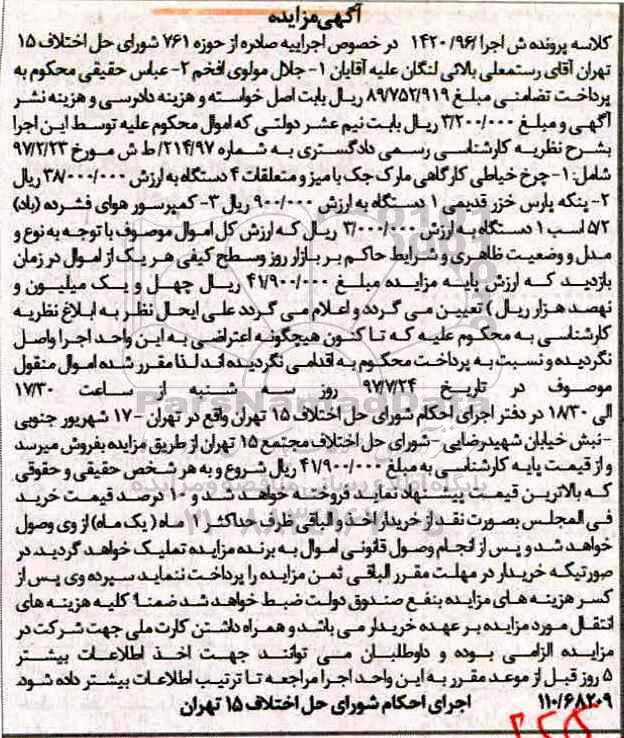 آگهی مزایده
کلاسه پرونده ش اجرا ۱۴۲۰/۹۶ در خصوص اجراییه صادره از حوزه ۷۶۱ شورای حل اختلاف ۱۵
تهران آقای رستمعلی بالائی لنگان علیه آقایان ۱- جلال مولوی افخم ۲- عباس حقیقی محکوم به
پرداخت تضامنی مبلغ ۸۹/۷۵۲/۹۱۹ ریال بابت اصل خواسته و هزینه دادرسی و هزینه نشر
آگهی و مبلغ ۳/۲۰۰/۰۰۰ ریال بابت نیم عشر دولتی که اموال محکوم علیه توسط این اجرا
بشرح نظریه کارشناسی رسمی دادگستری به شماره ۲۱۴/۹۷/ ط ش مورخ ۹۷/۲/۲۳
شامل: ۱- چرخ خیاطی کارگاهی مارک جک با میز و متعلقات ۴ دستگاه به ارزش ۳۸/۰۰۰/۰۰۰ ریال
۲- پنکه پارس خزر قدیمی ۱ دستگاه به ارزش ۹۰۰/۰۰۰ ریال ۳- کمپرسور هوای فشرده (باد)
۵/۲ اسب ۱ دستگاه به ارزش ۳/۰۰۰/۰۰۰ ریال که ارزش کل اموال موصوف با توجه به نوع و
مدل و وضعیت ظاهری و شرایط حاکم بر بازار روز وسطح کیفی هر یک از اموال در زمان
بازدید که ارزش پایه مزایده مبلغ ۴۱/۹۰۰/۰۰۰ ریال چهل و یک میلیون و
نهصد هزار ریال) تعیین می گردد و اعلام می گردد علی ایحال نظر به ابلاغ نظریه
کارشناسی به محکوم علیه که تا کنون هیچگونه اعتراضی به این واحد اجرا واصل
نگردیده و نسبت به پرداخت محکوم به اقدامی نگردیده اند لذا مقرر شده اموال منقول
موصوف در تاریخ ۹۷/۷/۲۴ روز سه شنبه از ساعت ۱۷/۳۰
الی ۱۸/۳۰ در دفتر اجرای احکام شورای حل اختلاف ۱۵ تهران واقع در تهران - ۱۷ شهریور جنوبی
- نبش خیابان شهیدرضایی - شورای حل اختلاف مجتمع ۱۵ تهران از طریق مزایده بفروش میرسد
و از قیمت پایه کارشناسی به مبلغ ۴۱/۹۰۰/۰۰۰ ریال شروع و به هر شخص حقیقی و حقوقی
که بالاترین قیمت پیشنهاد نماید فروخته خواهد شد و ۱۰ درصد قیمت خرید
فی المجلس بصورت نقد از خریدار اخذ و الباقی ظرف حداکثر ۱ ماه (یک ماه) از وی وصول
خواهد شد و پس از انجام وصول قانونی اموال به برنده مزایده تملیک خواهد گردید در
صورتیکه خریدار در مهلت مقرر الباقی ثمن مزایده را پرداخت ننماید سپرده وی پس از
کسر هزینه های مزایده بنفع صندوق دولت ضبط خواهد شد ضمنا کلیه هزینه های
انتقال مورد مزایده بر عهده خریدار می باشد و همراه داشتن کارت ملی جهت شرکت در
مزایده الزامی بوده و داوطلبان می توانند جهت اخذ اطلاعات بیشتر
۵ روز قبل از موعد مقرر به این واحد اجرا مراجعه تا ترتیب اطلاعات بیشتر داده شود.
۱۱۰/۶۸۲۰۹ اجرای احکام شورای حل اختلاف ۱۵ تهران